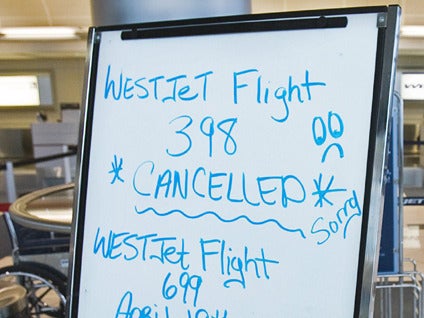 WESTJeT Flight
398
* CANCELLED *
Sorry
WESTJet Flight
699
April